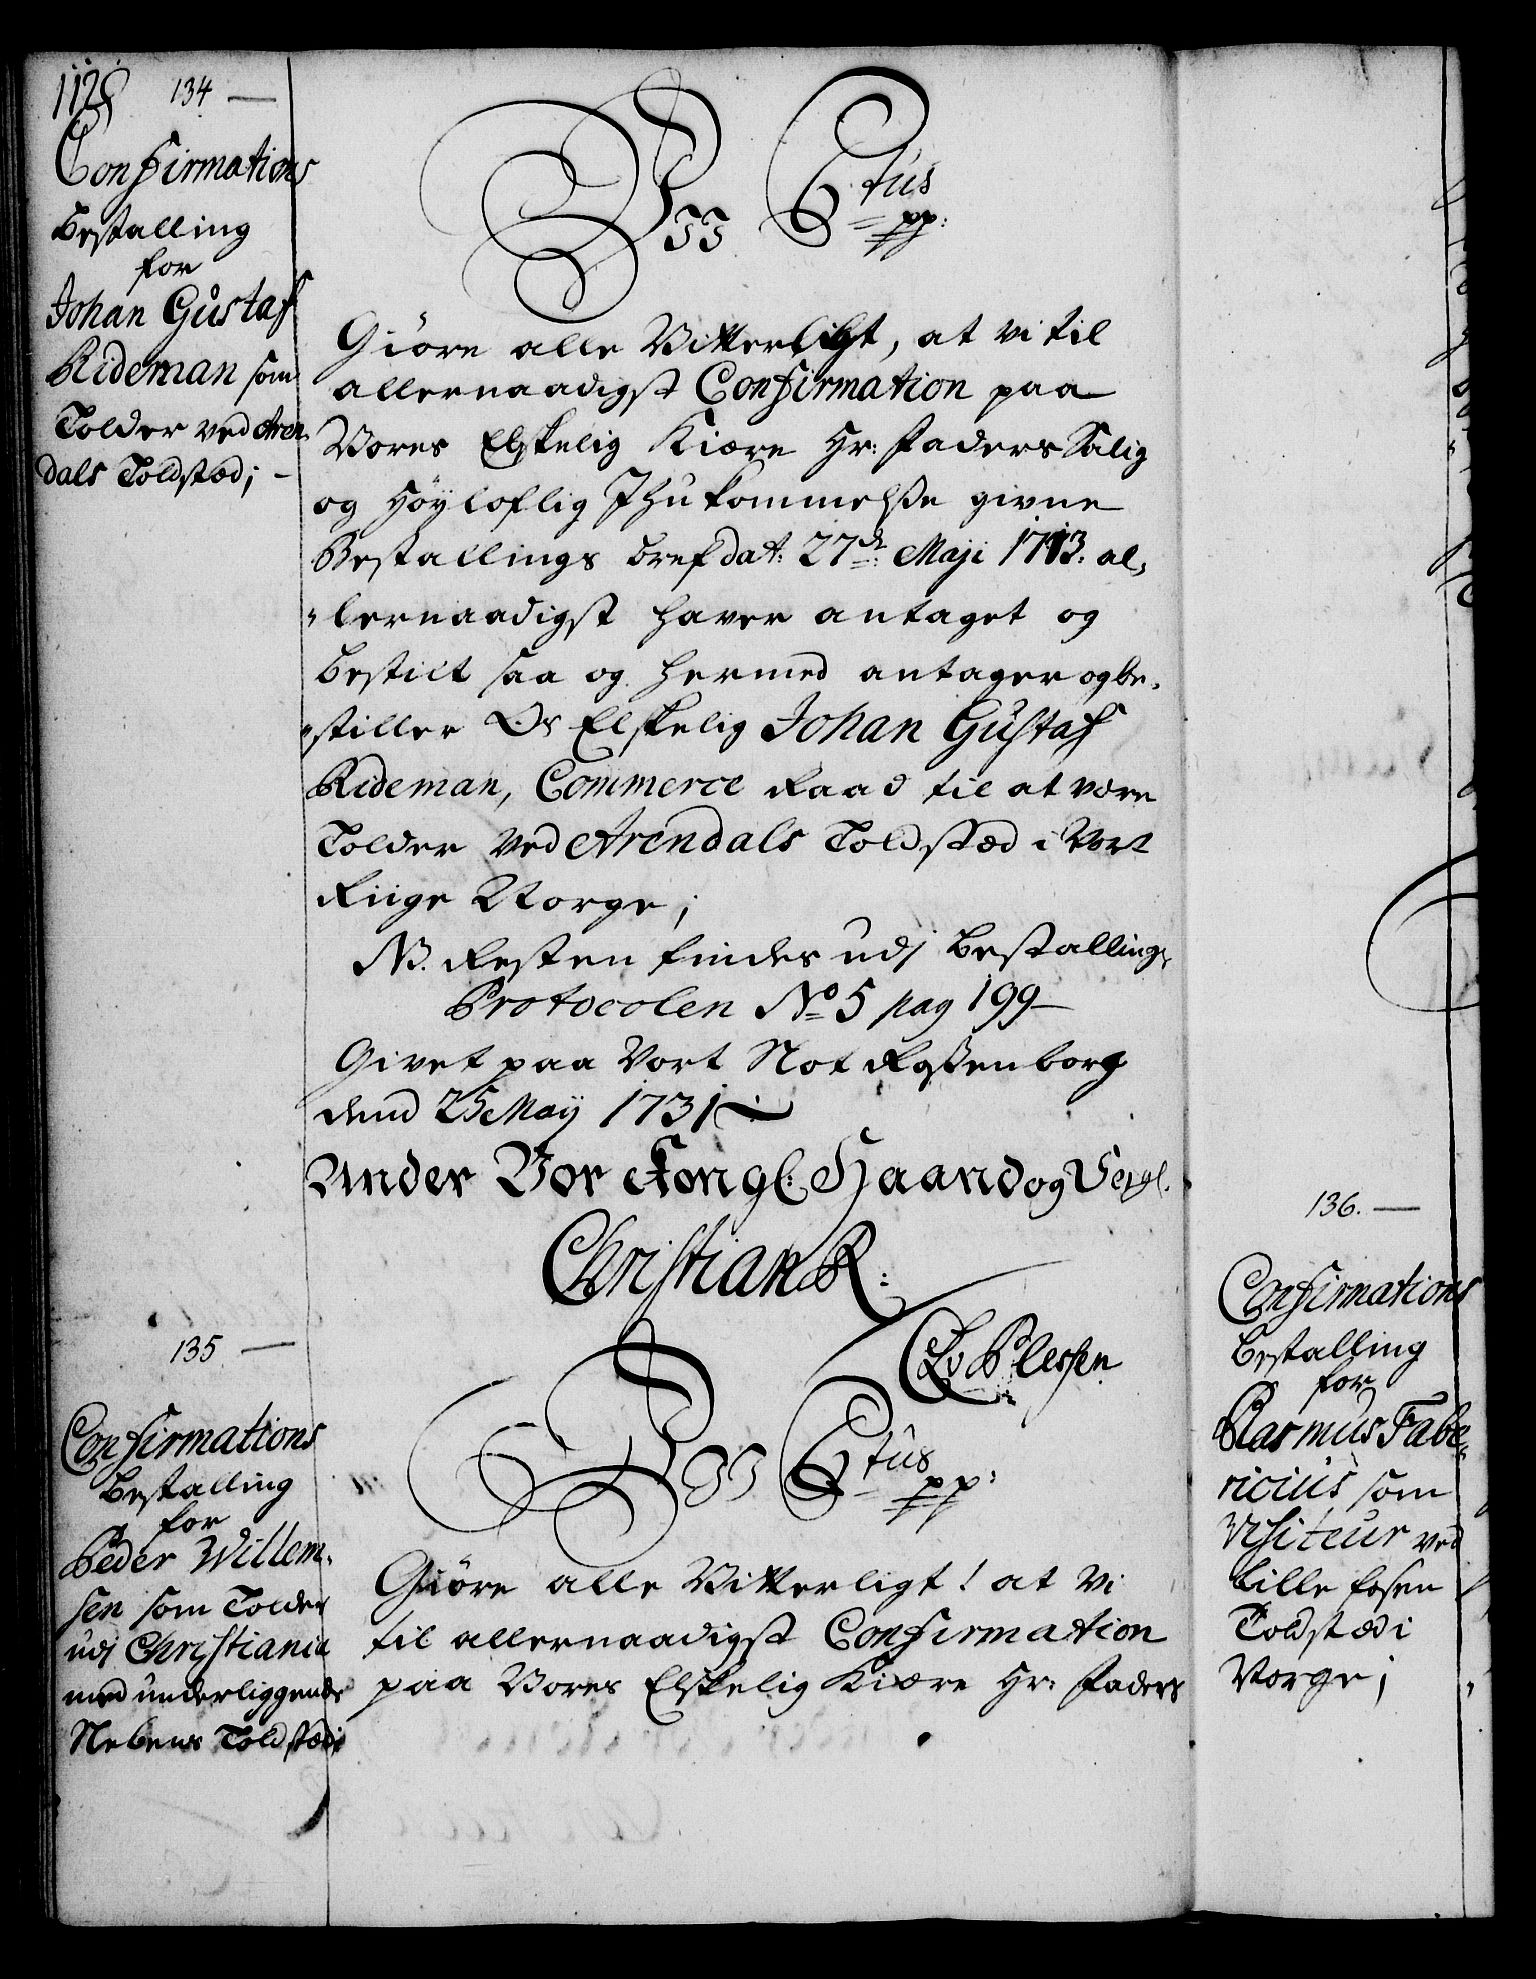 112
134
Confirmations
Bestalling
for
Johan Gustaf
Rideman som
Tolder ved Aren
dals Toldstæd;
Vii C6tus
pp:
Giöre alle Vitterligt, at vi til
allernaadigst Confirmation paa
Vores Elskelig Kiære Hr: Faders Salig
og Höyloflig Ihukommelsse givne
Bestallings bref dat: 27de Maji 1713. al,
lernaadigst haver antaget og
bestilt saa og hermed antager og be,
stiller Os Elskelig Johan Gustaf
Rideman, Commerce Raad til at være
Tolder ved Arendals Toldstæd i Vort
Riige Norge;
NB. Resten findes udj Bestallings
Protocolen No 5 pag 199
Givet paa Vort Slot Rossenborg
dend 25 May 1731
Under Vor Kongl: Haand og Seigl.
Christian R:
CLv Plessen
135
Confirmations
Bestalling
for
Peder Willem,
sen som Tolder
udj Christiania
med underliggende
Nebens Toldstæd;
Vii C6tus
pp:
Giiöre alle Vitterligt! at Vi
til allernaadigst Confirmation
paa Vores Elskelig Kiære Hr: Faders
136.
Confirmations
Bestalling
for
Rasmus Fabe,
ricius som
Visiteur ved
Lille fosen
Toldstæd i
Norge;